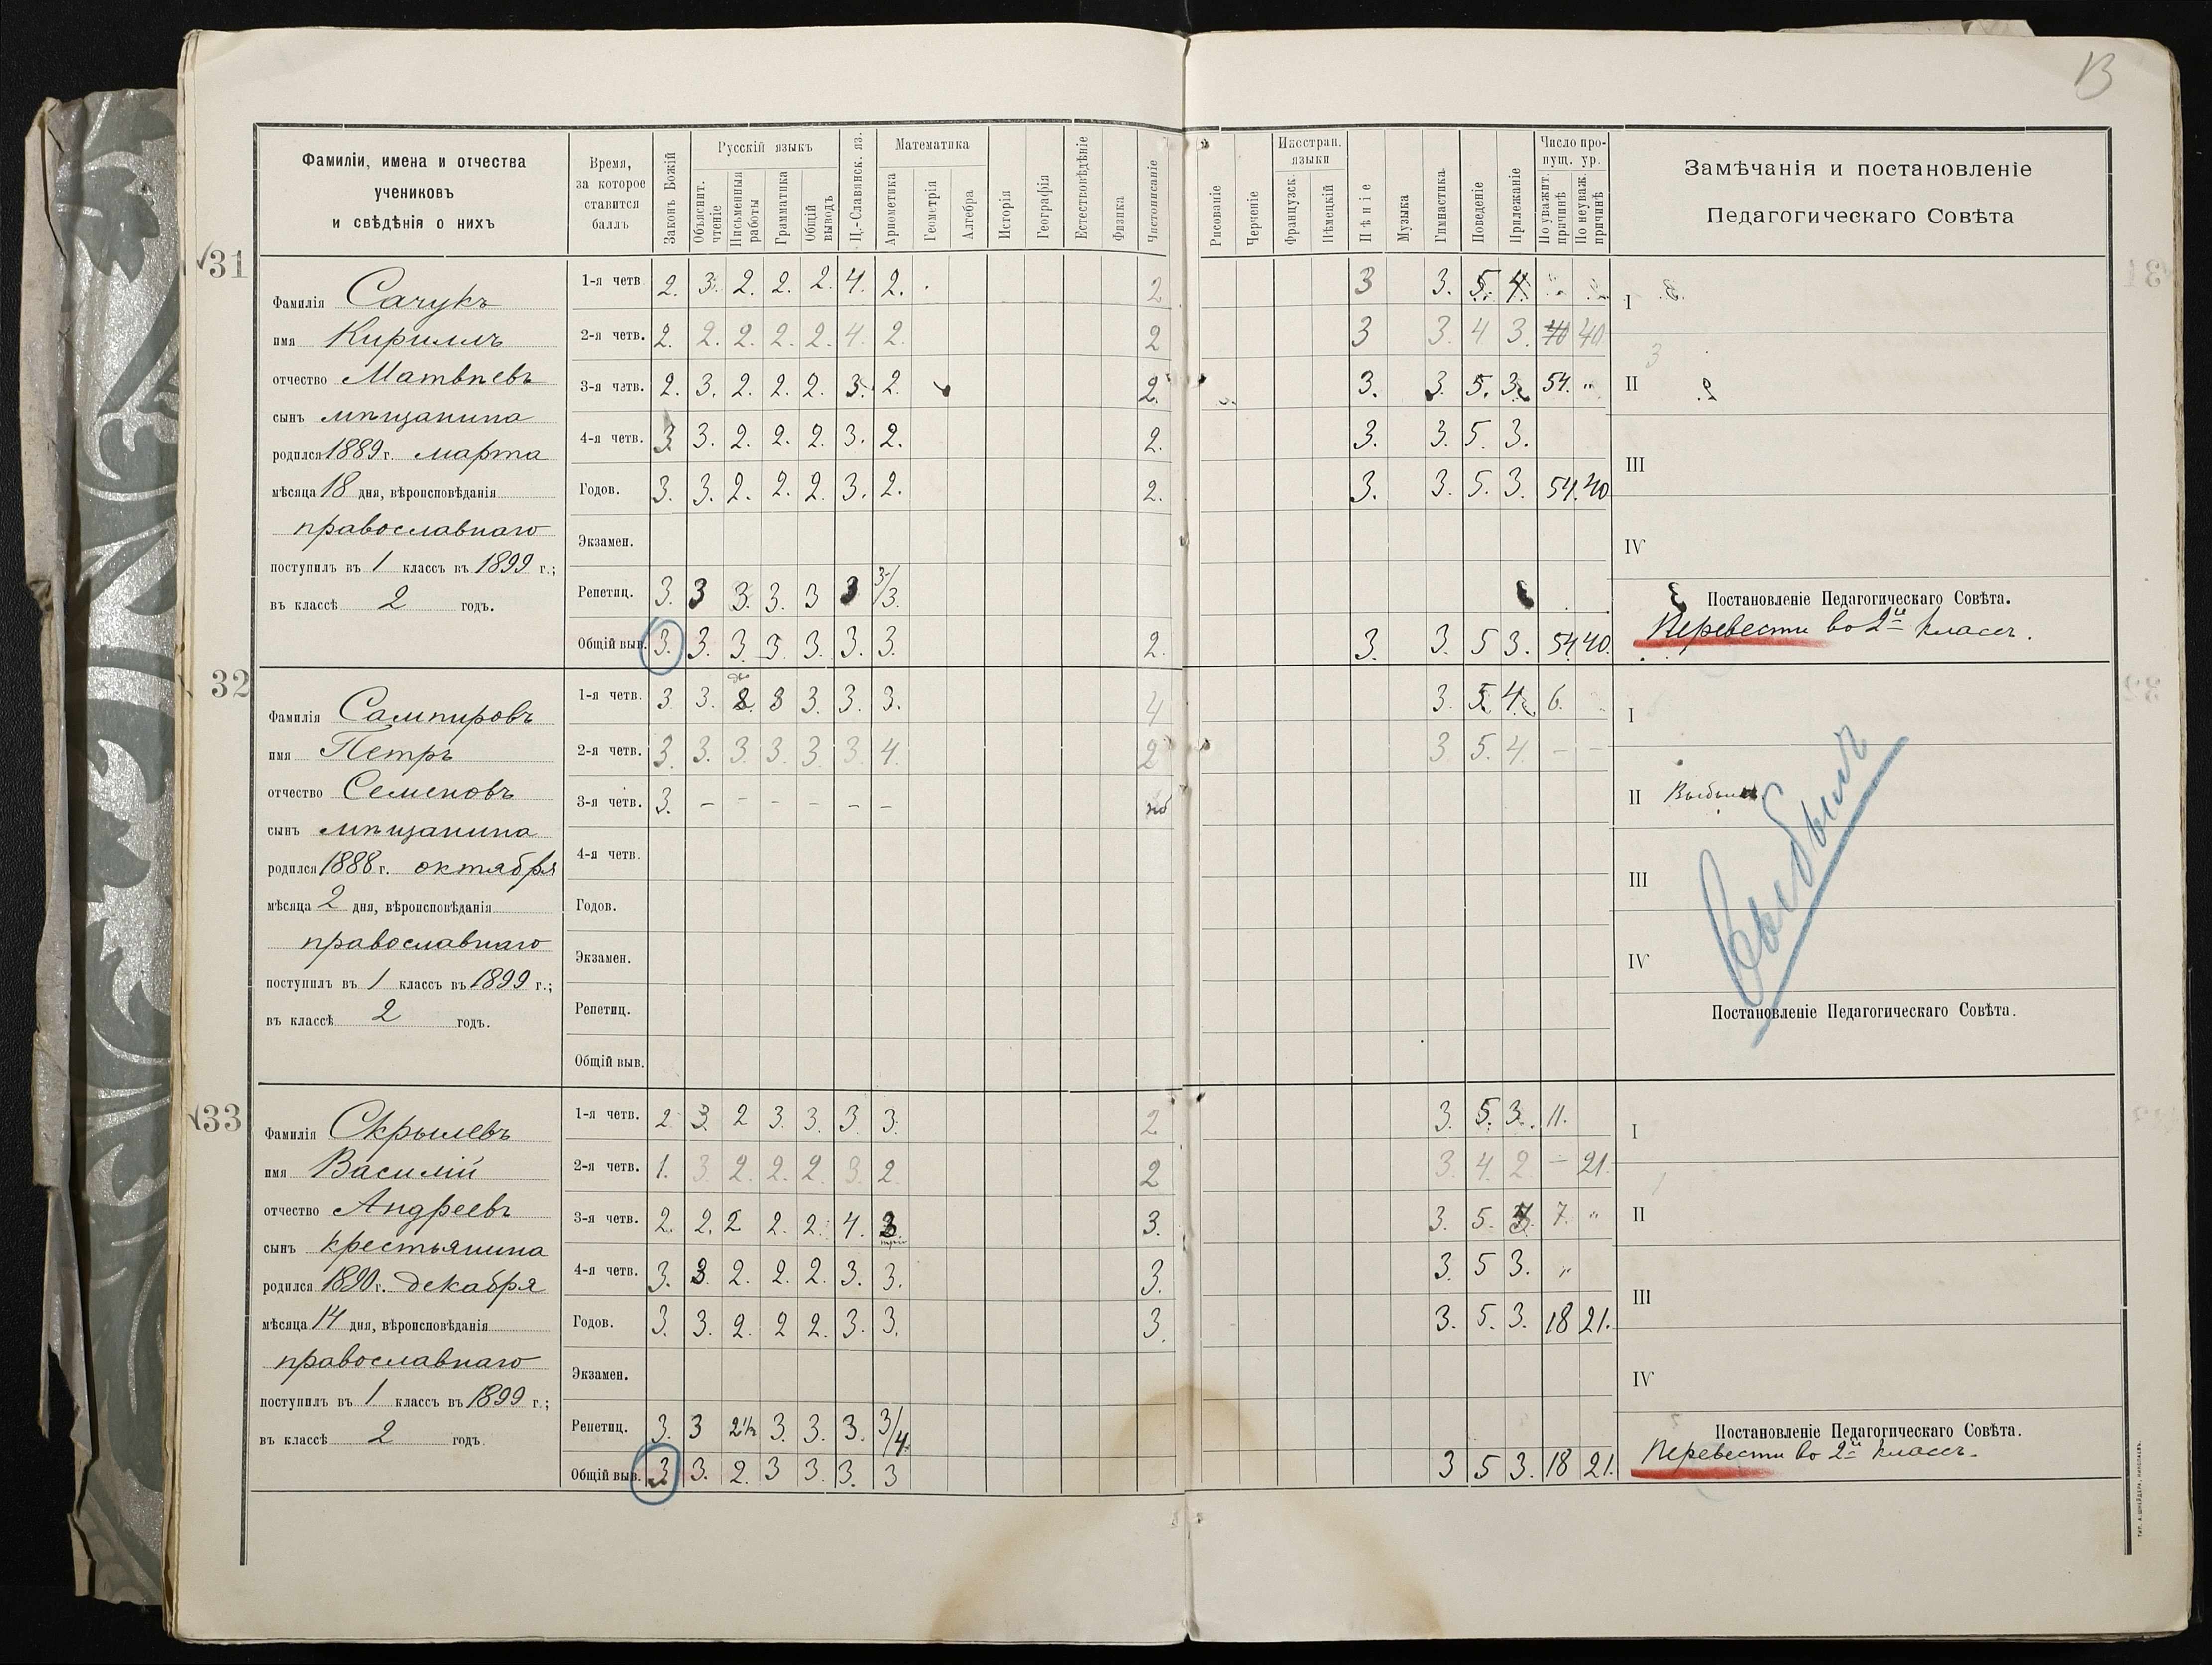 13
Фамиліи, имена и отчества
учениковъ
и свѣдѣнія о нихъ
Время,
за которое
ставится
баллъ
Законъ Божій
Русскій языкъ
Объяснит. чтеніе
Письменныя работы
Грамматика
Общій выводъ
Ц.-Славянск. яз.
Математика
Ариѳметика
Геометрія
Алгебра
Исторія
Географія
Естествовѣдѣніе
Физика
Чистописаніе
Рисованіе
Черченіе
Иностран. языки
Французск.
Нѣмецкій
Пѣніе
Музыка
Гимнастика
Поведеніе
Прилежаніе
Число пропущ. ур.
По уважит. причинѣ
По неуваж. причинѣ
Замѣчанія и постановленіе
Педагогическаго Совѣта
31
Фамилія Сачукъ
имя Кириллъ
отчество Матвѣевъ
сынъ мѣщанина
родился 1889 г. марта
мѣсяца 18 дня, вѣроисповѣданія
православнаго
поступилъ въ 1 классъ въ 1899 г.;
въ классѣ 2 годъ.
1-я четв. 2. 3. 2. 2. 2. 4. 2. 2 3 3. 5. 4. I
2-я четв. 2. 2. 2. 2. 2. 4. 2. 2 3 3. 4 3. 40 40
3-я четв. 2. 3. 2. 2. 2. 3. 2. 2. 3. 3. 5. 3. 54. „ II
4-я четв. 3 3. 2. 2. 2. 3. 2. 2. 3. 3. 5. 3.
Годов. 3. 3. 2. 2. 2. 3. 2. 2. 3. 3. 5. 3. 54. 40 III
Экзамен. IV
Репетиц. 3. 3 3. 3. 3 3 3-/3.
Постановленіе Педагогическаго Совѣта.
Общій выв. 3. 3. 3 3 3. 3. 3. 2. 3. 3. 5 3. 54 40.
Перевести во 2й классъ.
32
Фамилія Сампировъ
имя Петръ
отчество Семеновъ
сынъ мѣщанина
родился 1888 г. октября
мѣсяца 2 дня, вѣроисповѣданія
православнаго
поступилъ въ 1 классъ въ 1899 г.;
въ классѣ 2 годъ.
1-я четв. 3 3. 2. 3 3. 3. 3. 4 3. 5. 4. 6. I
2-я четв. 3. 3. 3. 3. 3. 3. 4. 2 3 5. 4. – –
3-я четв. 3. – – – – – – нб II Выбылъ.
4-я четв. III
Годов.
Экзамен. IV
Репетиц.
Постановленіе Педагогическаго Совѣта.
Общій выв.
Выбылъ
33
Фамилія Скрылевъ
имя Василій
отчество Андреевъ
сынъ крестьянина
родился 1890 г. декабря
мѣсяца 14 дня, вѣроисповѣданія
православнаго
поступилъ въ 1 классъ въ 1899 г.;
въ классѣ 2 годъ.
1-я четв. 2 3. 2 3 3. 3 3. 2 3. 5. 3. 11. I
2-я четв. 1. 3 2. 2. 2. 3. 2. 2 3. 4. 2 – 21.
3-я четв. 2. 2. 2 2. 2. 4. 3. 3. 3. 5. 3. 7. „ II
4-я четв. 3. 3. 2. 2. 2. 3. 3. 3. 3. 5 3. „
Годов. 3. 3. 2. 2 2. 3. 3. 3. 3. 5. 3. 18 21. III
Экзамен. IV
Репетиц. 3. 3 2½ 3. 3. 3. 3/4.
Постановленіе Педагогическаго Совѣта.
Общій выв. 3 3. 2. 3 3. 3. 3 3 5 3. 18 21.
Перевести во 2й классъ.
Тип. А. Шнейдеръ, Николаевъ.